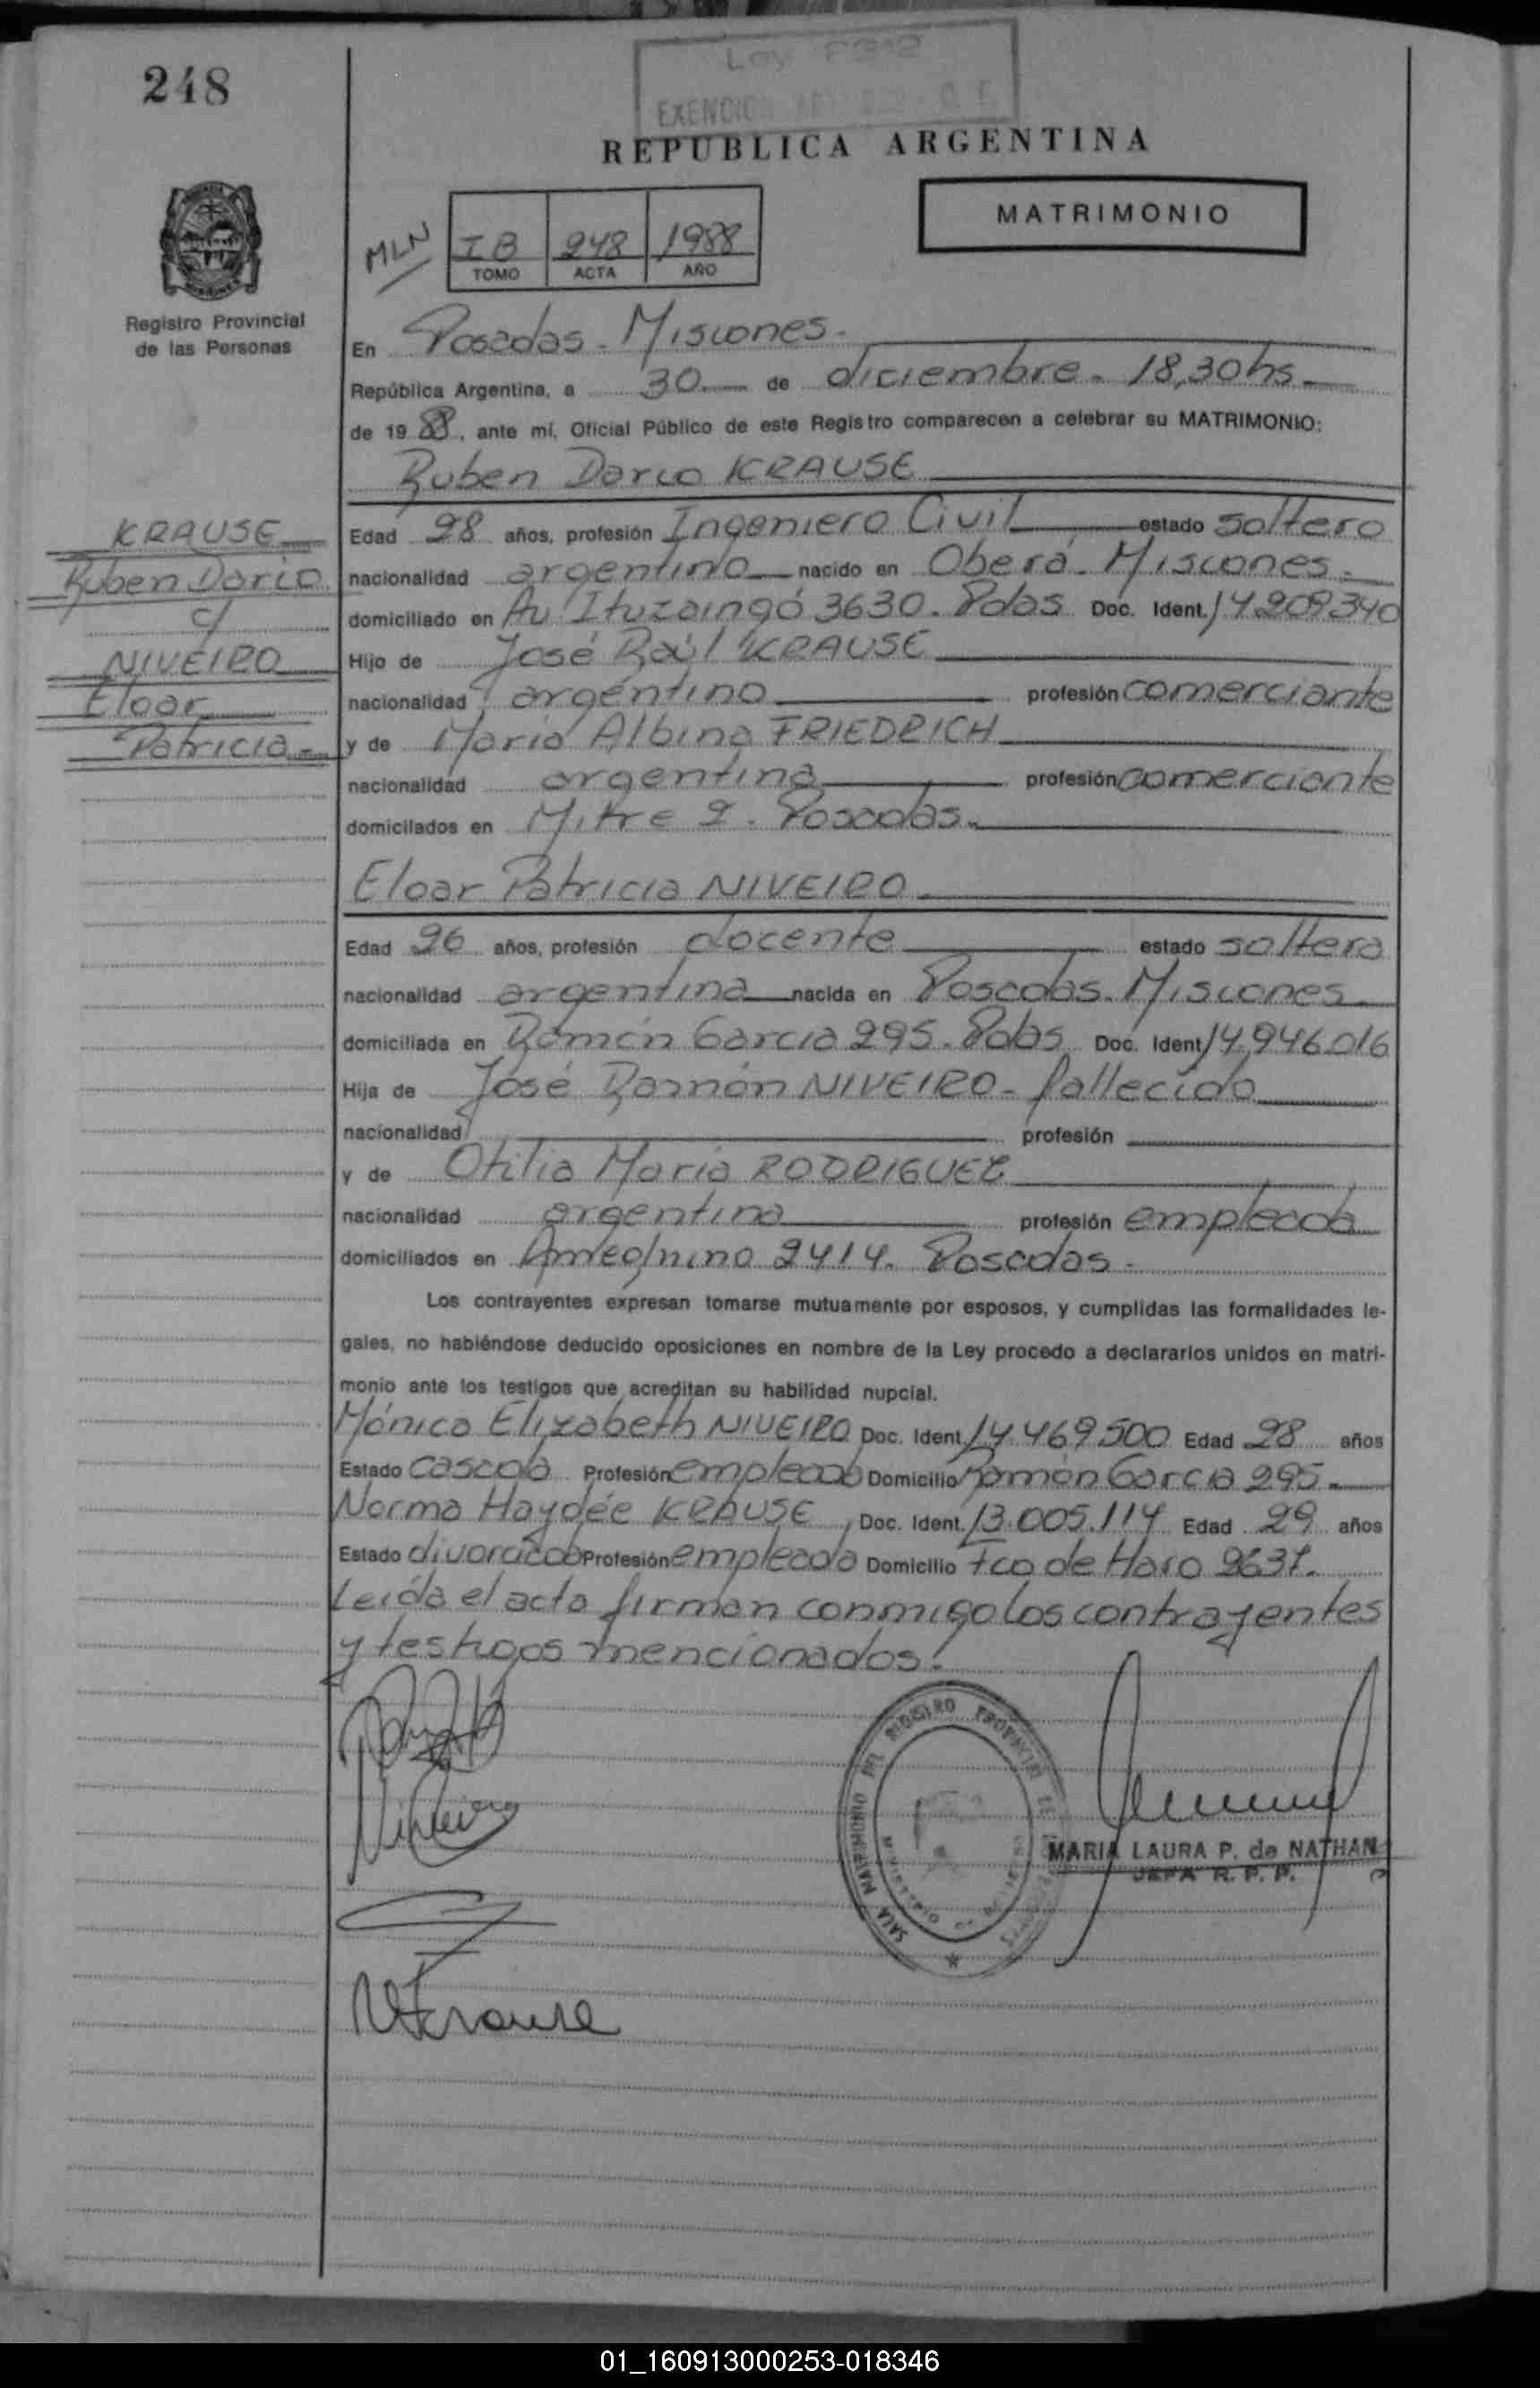 248
Ley
EXENCION
REPUBLICA ARGENTINA
MATRIMONIO
MLN
I B 248 1988
TOMO ACTA AÑO
Registro Provincial
de las Personas
En Posadas - Misiones.
República Argentina, a 30 de diciembre. 18,30 hs.
de 1988, ante mí, Oficial Público de este Registro comparecen a celebrar su MATRIMONIO:
Ruben Dario KRAUSE
KRAUSE
Ruben Dario
c/
NIVEIRO
Eloar
Patricia
Edad 28 años, profesión Ingeniero Civil estado soltero
nacionalidad argentino nacido en Oberá. Misiones.
domiciliado en Av Ituzaingó 3630. Pdas Doc. Ident. 14.209.340
Hijo de José Raúl KRAUSE
nacionalidad argentino profesión comerciante
y de María Albina FRIEDRICH
nacionalidad argentina profesión comerciante
domiciliados en Mitre 2. Posadas.
Eloar Patricia NIVEIRO
Edad 26 años, profesión docente estado soltera
nacionalidad argentina nacida en Posadas. Misiones
domiciliada en Ramón Garcia 295. Pdas Doc. Ident 14.946.016
Hija de José Ramón NIVEIRO - fallecido
nacionalidad profesión
y de Otilia María RODRIGUEZ
nacionalidad argentina profesión empleada
domiciliados en Ameghino 2414. Posadas.
Los contrayentes expresan tomarse mutuamente por esposos, y cumplidas las formalidades le-
gales, no habiéndose deducido oposiciones en nombre de la Ley procedo a declararlos unidos en matri-
monio ante los testigos que acreditan su habilidad nupcial.
Mónica Elizabeth NIVEIRO Doc. Ident. 14.469.500 Edad 28 años
Estado casada Profesión empleada Domicilio Ramón Garcia 295.
Norma Haydée KRAUSE, Doc. Ident. 13.005.114 Edad 29 años
Estado divorciada Profesión empleada Domicilio Fco de Haro
Leída el acta firman conmigo los contrayentes
y testigos mencionados.
Niveiro
SALA MATRIMONIO DEL REGISTRO PROVINCIAL DE
MARIA LAURA P. de NATHAN
JEFA R. P. P.
NKrause
01_160913000253-018346